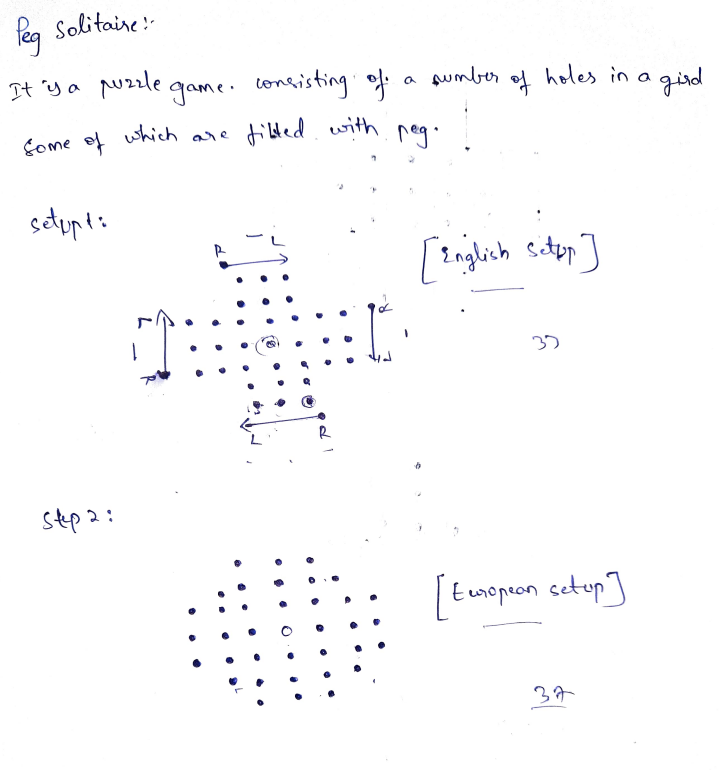 Peg Solitaire:-
It is a puzzle game. consisting of a number of holes in a gird
some of which are filled with peg.
setup1:
R - L
[English setup]
L
R
R
L
33
L R
step 2:
[European setup]
37